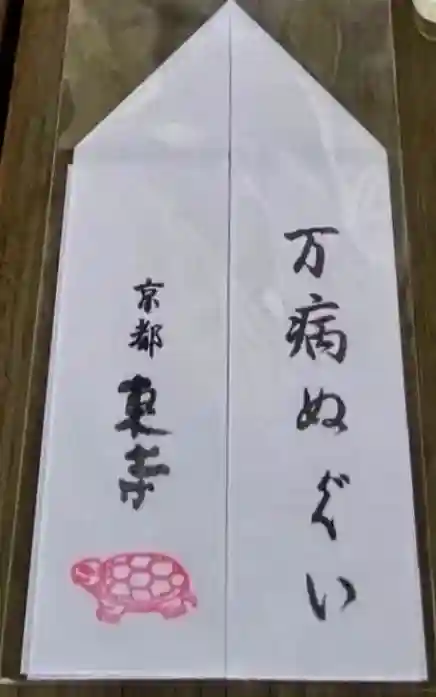 万病ぬぐい
京都 東寺